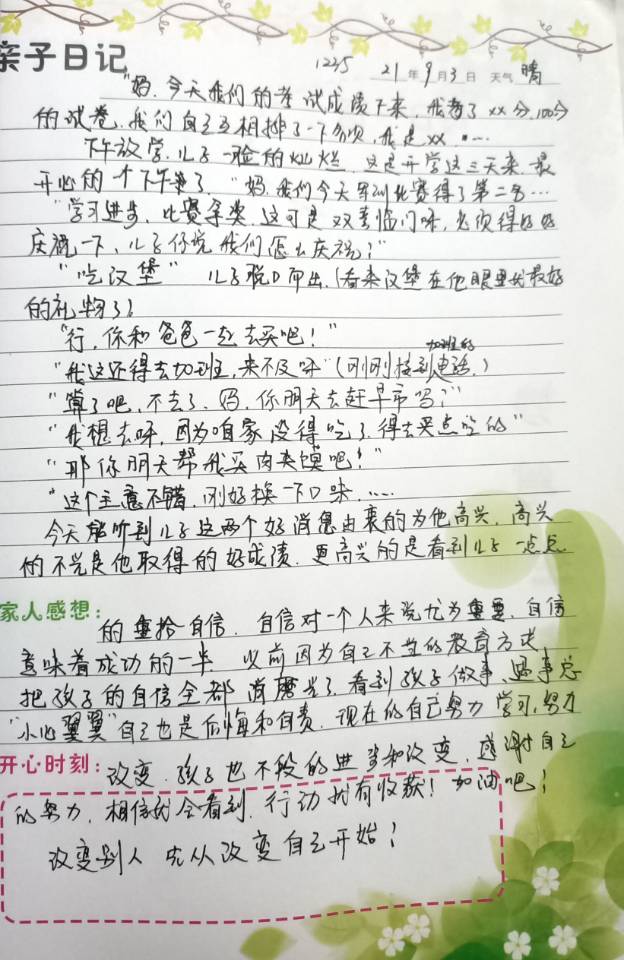 亲子日记
1225 21年9月3日 天气 晴
"妈.今天我们的考试成绩下来,我考了xx分,100分
的试卷.我们自己互相排了一下名次,我是xx ....
下午放学.儿子一脸的灿烂.这是开学这三天来.最
开心的一个下午了. "妈.我们今天军训比赛得了第二名...
"学习进步.比赛拿奖.这可是双喜临门呀,必须得好好
庆祝一下、儿子你说我们怎么庆祝?"
"吃汉堡" 儿子脱口而出.(看来汉堡在他眼里就最好
的礼物了!
"行,你和爸爸一起去买吧!"
"我这还得去加班,来不及呀"(刚刚接到加班的电话.)
"算了吧.不去了.妈.你明天去赶早市吗?"
"我想去呀,因为咱家没得吃了.得去买点吃的"
"那你明天帮我买肉夹馍吧!"
"这个主意不错,刚好换一下口味.....
今天能听到儿子这两个好消息由衷的为他高兴.高兴
的不光是他取得的好成绩.更高兴的是看到儿子一点点
家人感想:
的重拾自信.自信对一个人来说尤为重要.自信
意味着成功的一半 以前因为自己不当的教育方式
把孩子的自信全都消磨光了.看到孩子做事、遇事总
"小心翼翼"自己也是后悔和自责.现在的自己努力学习.努力
开心时刻:
改变.孩子也不段的进步和改变.感谢自己
的努力.相信就会看到.行动就有收获!加油吧!
改变别人 先从改变自己开始!